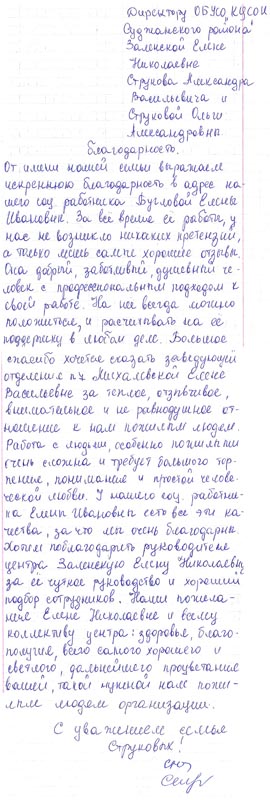 Директору ОБУСО „КЦСОН
Суджанского района"
Заленской Елене
Николаевне
Струкова Александра
Васильевича и
Струковой Ольги
Александровны
Благодарность.
От имени нашей семьи выражаем
искреннюю благодарность в адрес на-
шего соц. работника Бугловой Елены
Ивановны. За все время её работы, у
нас не возникло никаких претензий,
а только лишь самые хорошие отзывы.
Она добрый, заботливый, душевный че-
ловек с профессиональным подходом к
своей работе. На неё всегда можно
положиться, и расчитывать на её
поддержку в любом деле. Большое
спасибо хочется сказать заведующей
отделения Михалевской Елене
Васильевне за теплое, отзывчивое,
внимательное и не равнодушное от-
ношение к нам пожилым людям.
Работа с людьми, особенно пожилыми
очень сложна и требует большого тер-
пение, понимание и простой челове-
ческой любви. У нашего соц. работни-
ка Елены Ивановны есть все эти ка-
чества, за что мы очень благодарны.
Хотим поблагодарить руководителя
центра Заленскую Елену Николаевну
за её чуткое руководство и хороший
подбор сотрудников. Наши пожела-
ние Елене Николаевне и всему
коллективу центра: здоровья, благо-
получия, всего самого хорошего и
светлого, дальнейшего процветания
вашей, такой нужной нам пожи-
лым людям организации.
С уважением семья
Струковых!